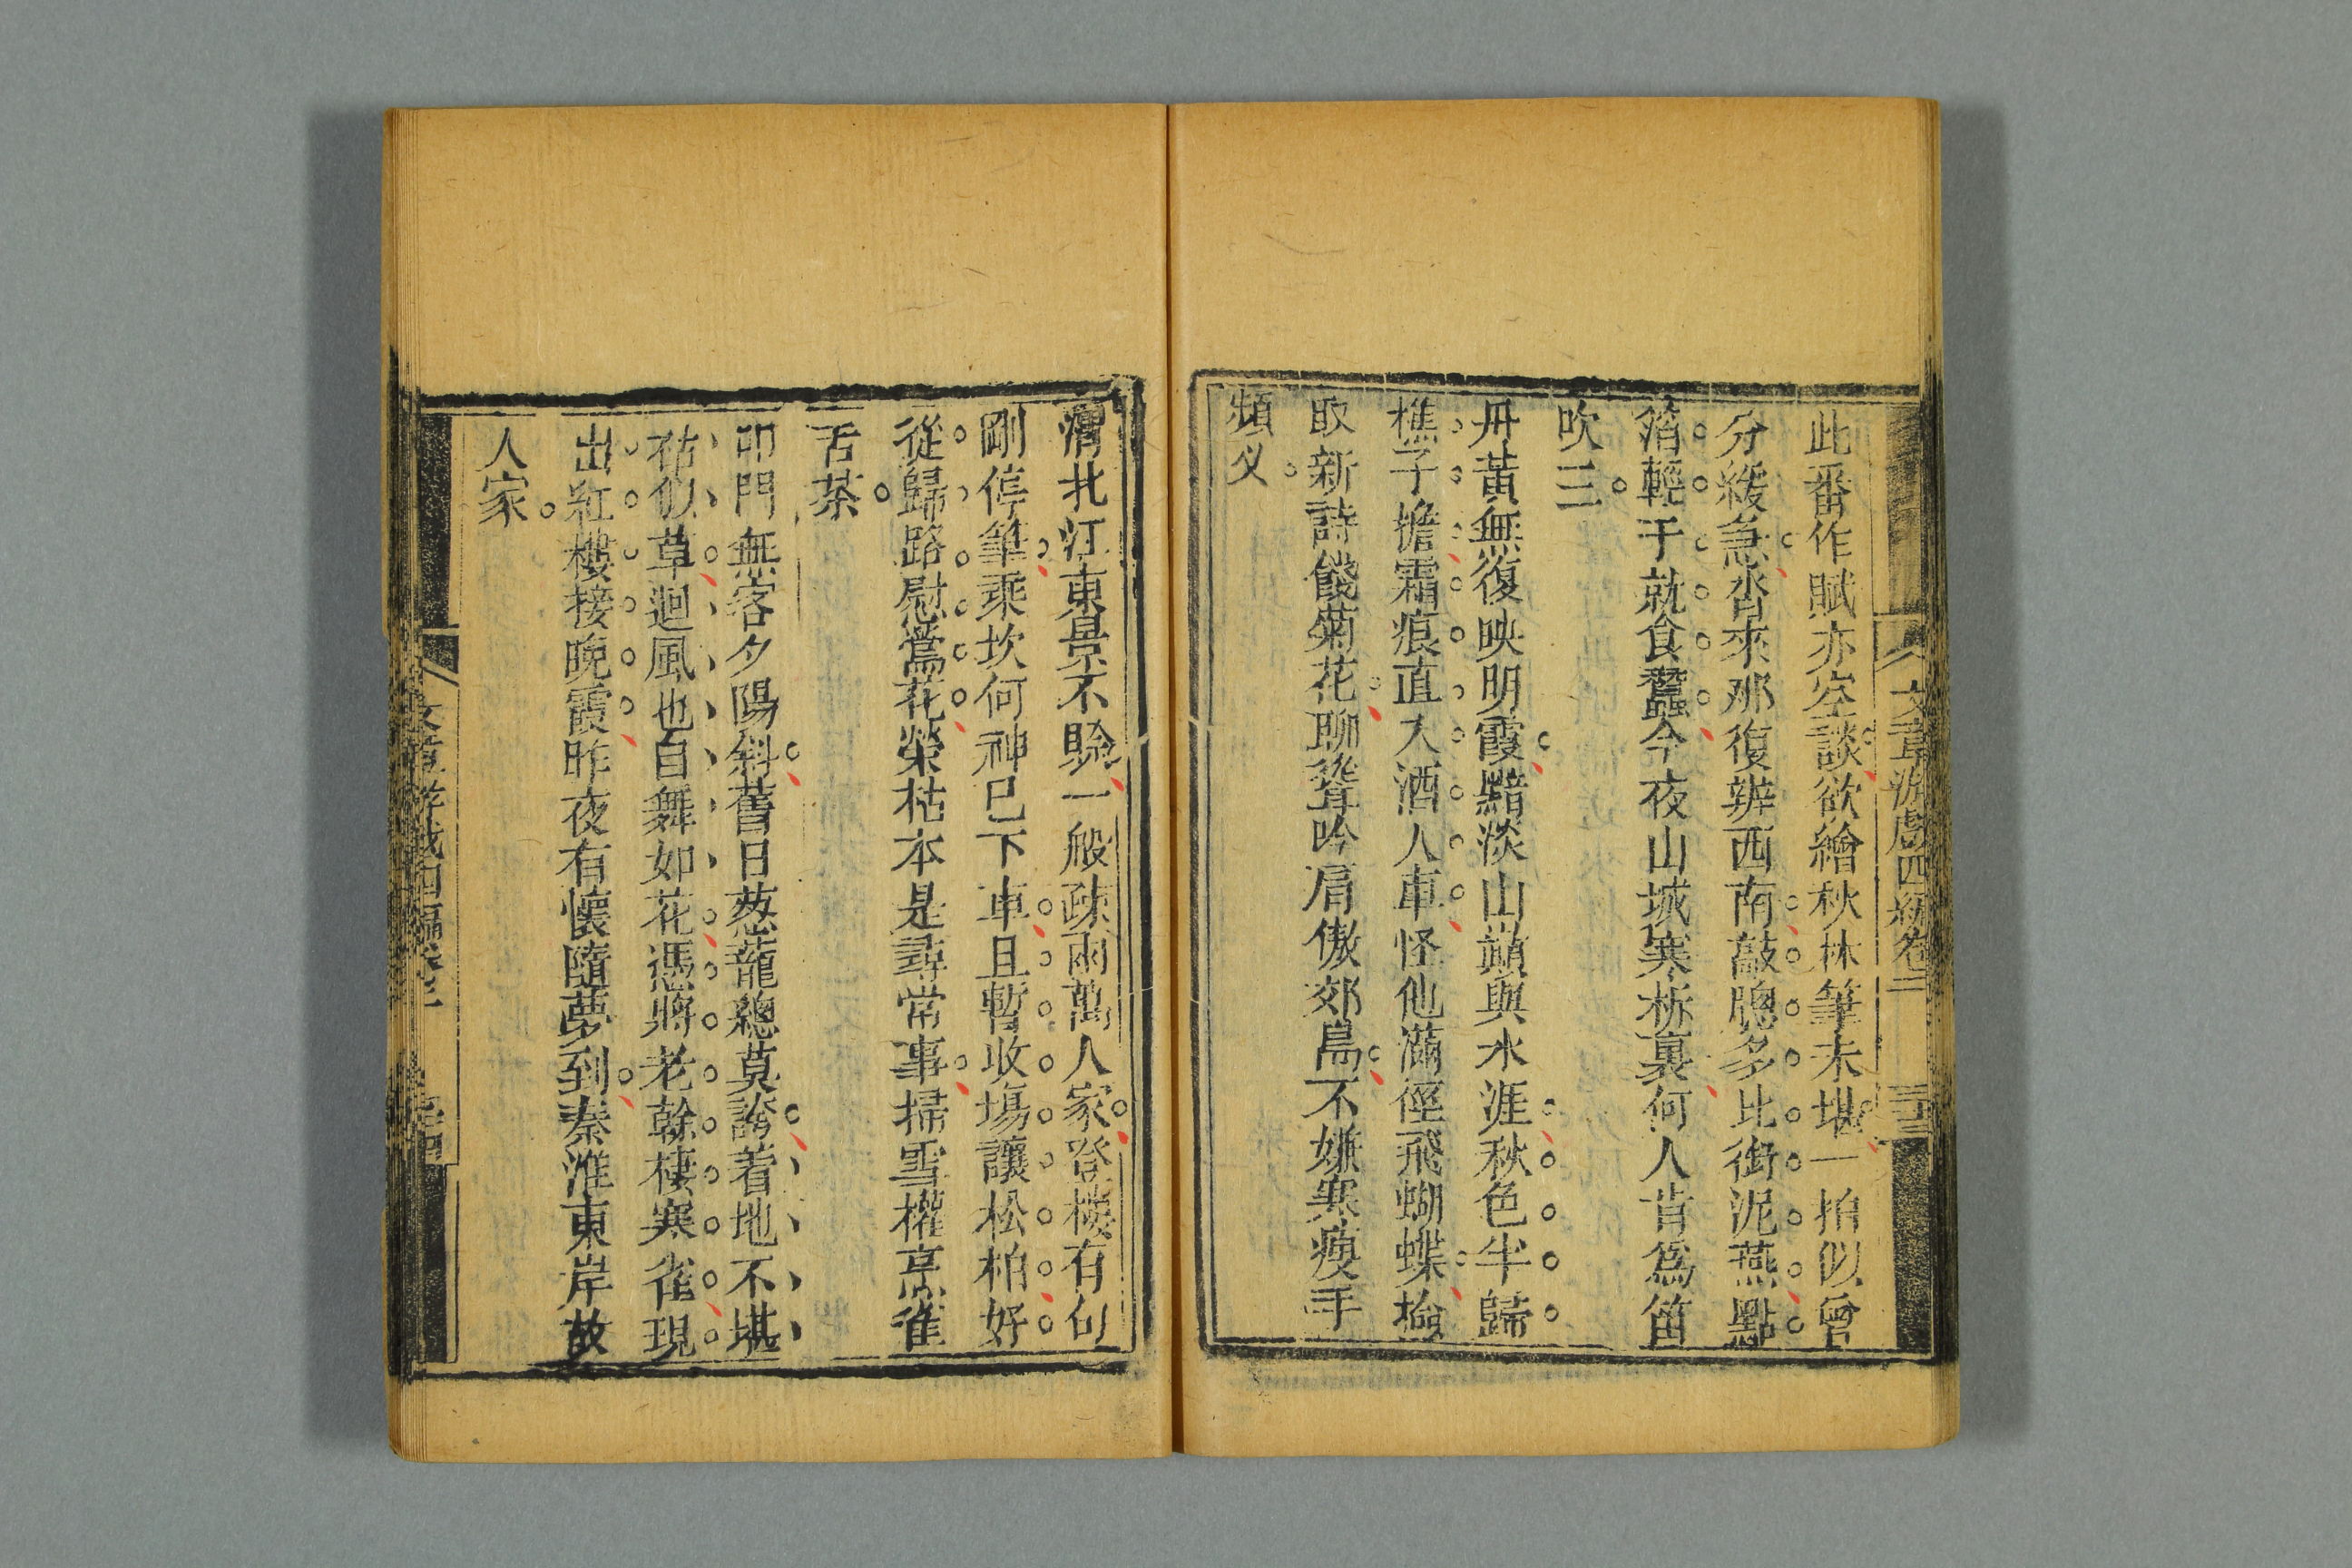 文章游戲四編卷三 三十三
此番作賦亦空談欲繪秋林筆未堪一拍似曾
分緩急吝來那復辨西南敲牕多比銜泥燕點
箔輕于就食蠶今夜山城寒柝裏何人肯爲笛
吹三
丹黃無復映明霞黯淡山蘋與水涯秋色半歸
樵子擔霜痕直入酒人車怪他滿徑飛蝴蝶
取新詩餞菊花聊聳吟肩傲郊島不嫌寒瘦手
頻乂
渭北江東景不賒一般疎雨萬人家登樓有句
剛停筆乘坎何神已下車且暫收塲讓松柏好
從歸路慰鶯花榮枯本是尋常事掃雪權烹雀
舌茶
叩門無客夕陽斜舊日葱蘢總莫誇着地不堪
枯似草迴風也自舞如花憑將老幹棲寒雀現
出紅樓接晚霞昨夜有懷隨夢到秦淮東岸故
人家
文章游戲四編卷三